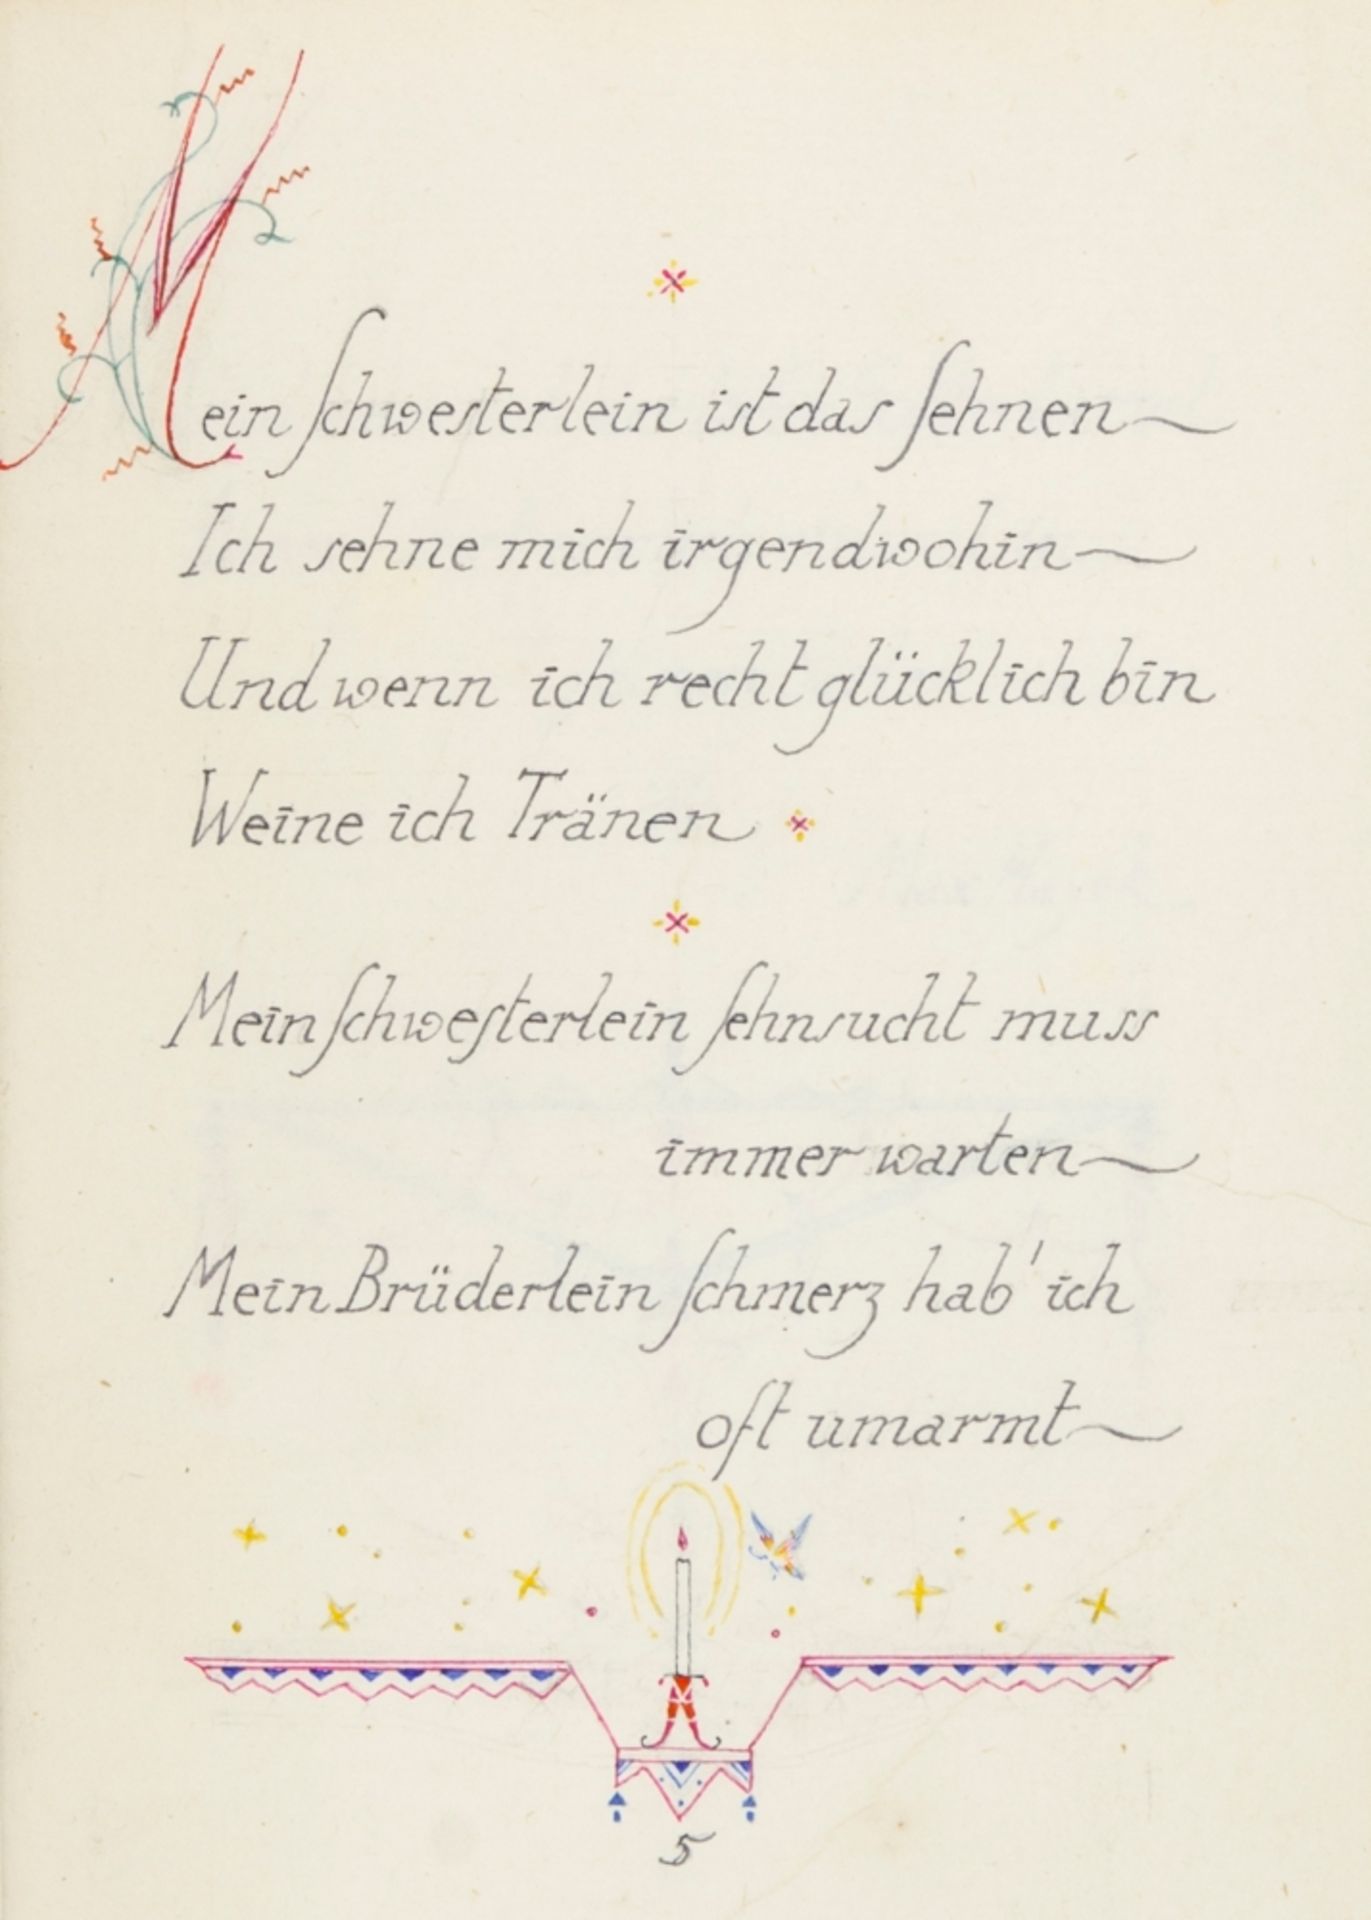 Mein Schwesterlein ist das Sehnen
Ich sehne mich irgendwohin
Und wenn ich recht glücklich bin
Weine ich Tränen
Mein Schwesterlein Sehnsucht muss
immer warten
Mein Brüderlein Schmerz hab' ich
oft umarmt
5